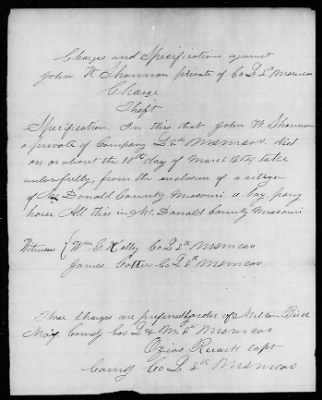 Charges and Specification against
John W Shannon private of Co L 8th M S M Cav
Charge
Theft
Specification. In this that John W Shannon
a private of Company L 8th M S M Cav. did
on or about the 10th day of March 1864, take
unlawfully, from the enclosure of a citizen
of Mc Donald County Missouri a bay pony
horse All this in Mc. Donald County Missouri
Witnesses { Wm C. Kelly Co L 8th M S M Cav
James Cotter Co L 8th M S M Cav
These Charges are preferred order of Milton Burch
Maj. Comdg Cos L & M 8th M S M Cav
Ozias Ruark Capt
Comdg Co L 8th M S M Cav